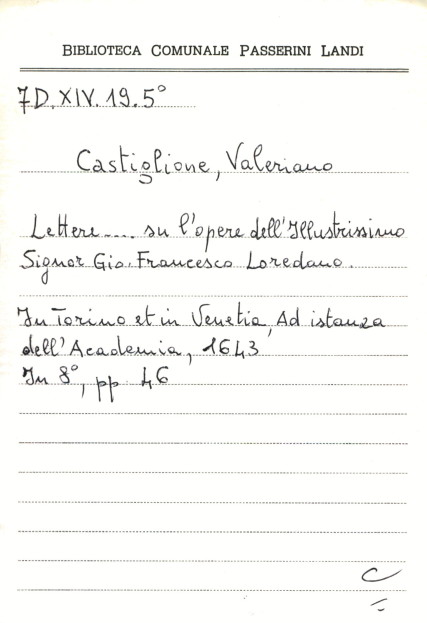 BIBLIOTECA COMUNALE PASSERINI LANDI
7D.XIV.19.5°
Castiglione, Valeriano
Lettere.... su l'opere dell'Illustrissimo
Signor Gio. Francesco Loredano.
In Torino et in Venetia, Ad istanza
dell'Academia, 1643
In 8°, pp 46
C